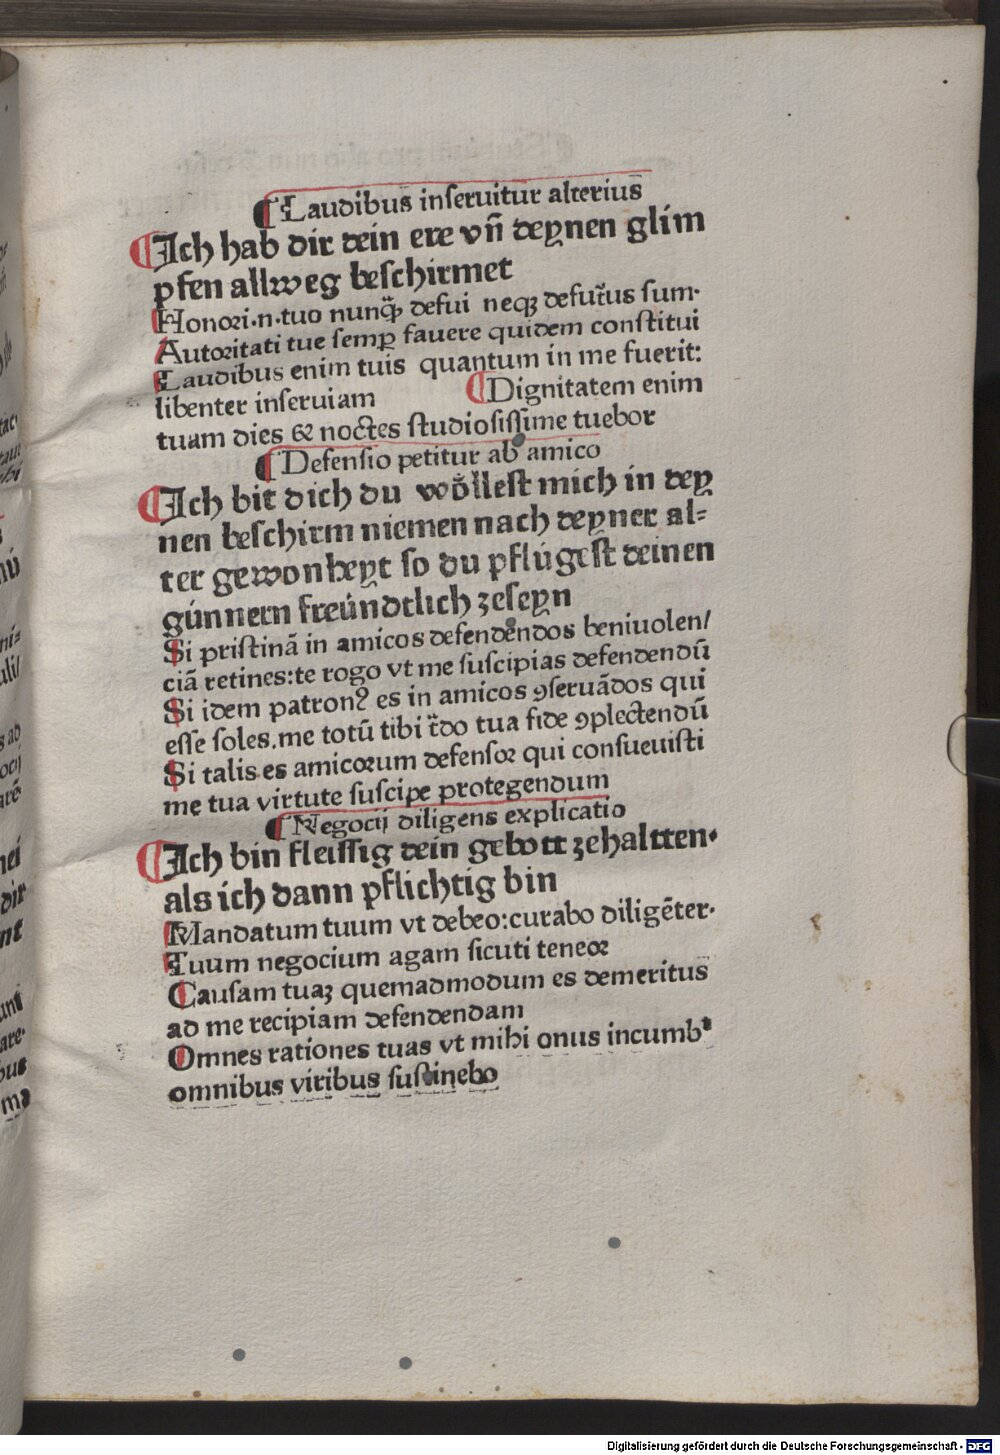 ¶ Laudibus inseruitur alterius
¶ Ich hab dir dein ere vn̄ deynen glim
pfen allweg beschirmet
Honori.n.tuo nunq̄ꝫ defui neqꝫ defut᷑us sum.
Autoritati tue semꝑ fauere quidem constitui
Laudibus enim tuis quantum in me fuerit:
libenter inseruiam ¶ Dignitatem enim
tuam dies & noctes studiosissime tuebor
¶ Defensio petitur ab amico
¶ Ich bit dich du wöllest mich in dey
nen beschirm niemen nach deyner al⸗
ter gewonheyt so du pflúgest deinen
gúnnern freúndtlich zeseyn
Si pristinā in amicos defendendos beniuolen/
ciā retines:te rogo vt me suscipias defendendū
Si idem patronꝰ es in amicos ꝯseruādos qui
esse soles.me totū tibi t᷑do tua fide ꝯplectendū
Si talis es amicorum defensor qui consueuisti
me tua virtute suscipe protegendum
¶ Negocij diligens explicatio
¶ Ich bin fleissig dein gebott zehaltten.
als ich dann pflichtig bin
Mandatum tuum vt debeo:curabo diligēter.
Tuum negocium agam sicuti teneor
Causam tuaꝫ quemadmodum es demeritus
ad me recipiam defendendam
Omnes rationes tuas vt mihi onus incumbᵗ
omnibus viribus sustinebo
Digitalisierung gefördert durch die Deutsche Forschungsgemeinschaft - DFG